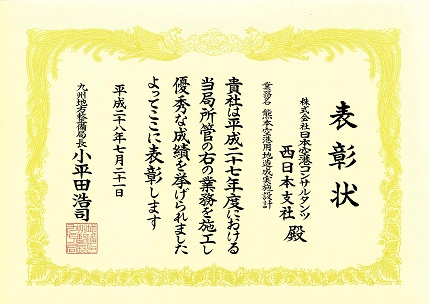 表彰状
株式会社日本空港コンサルタンツ
西日本支社 殿
業務名 熊本空港用地造成実施設計
貴社は平成二十七年度における
当局所管の右の業務を施工し
優秀な成績を挙げられました
よってここに表彰します
平成二十八年七月二十一日
九州地方整備局長 小平田浩司